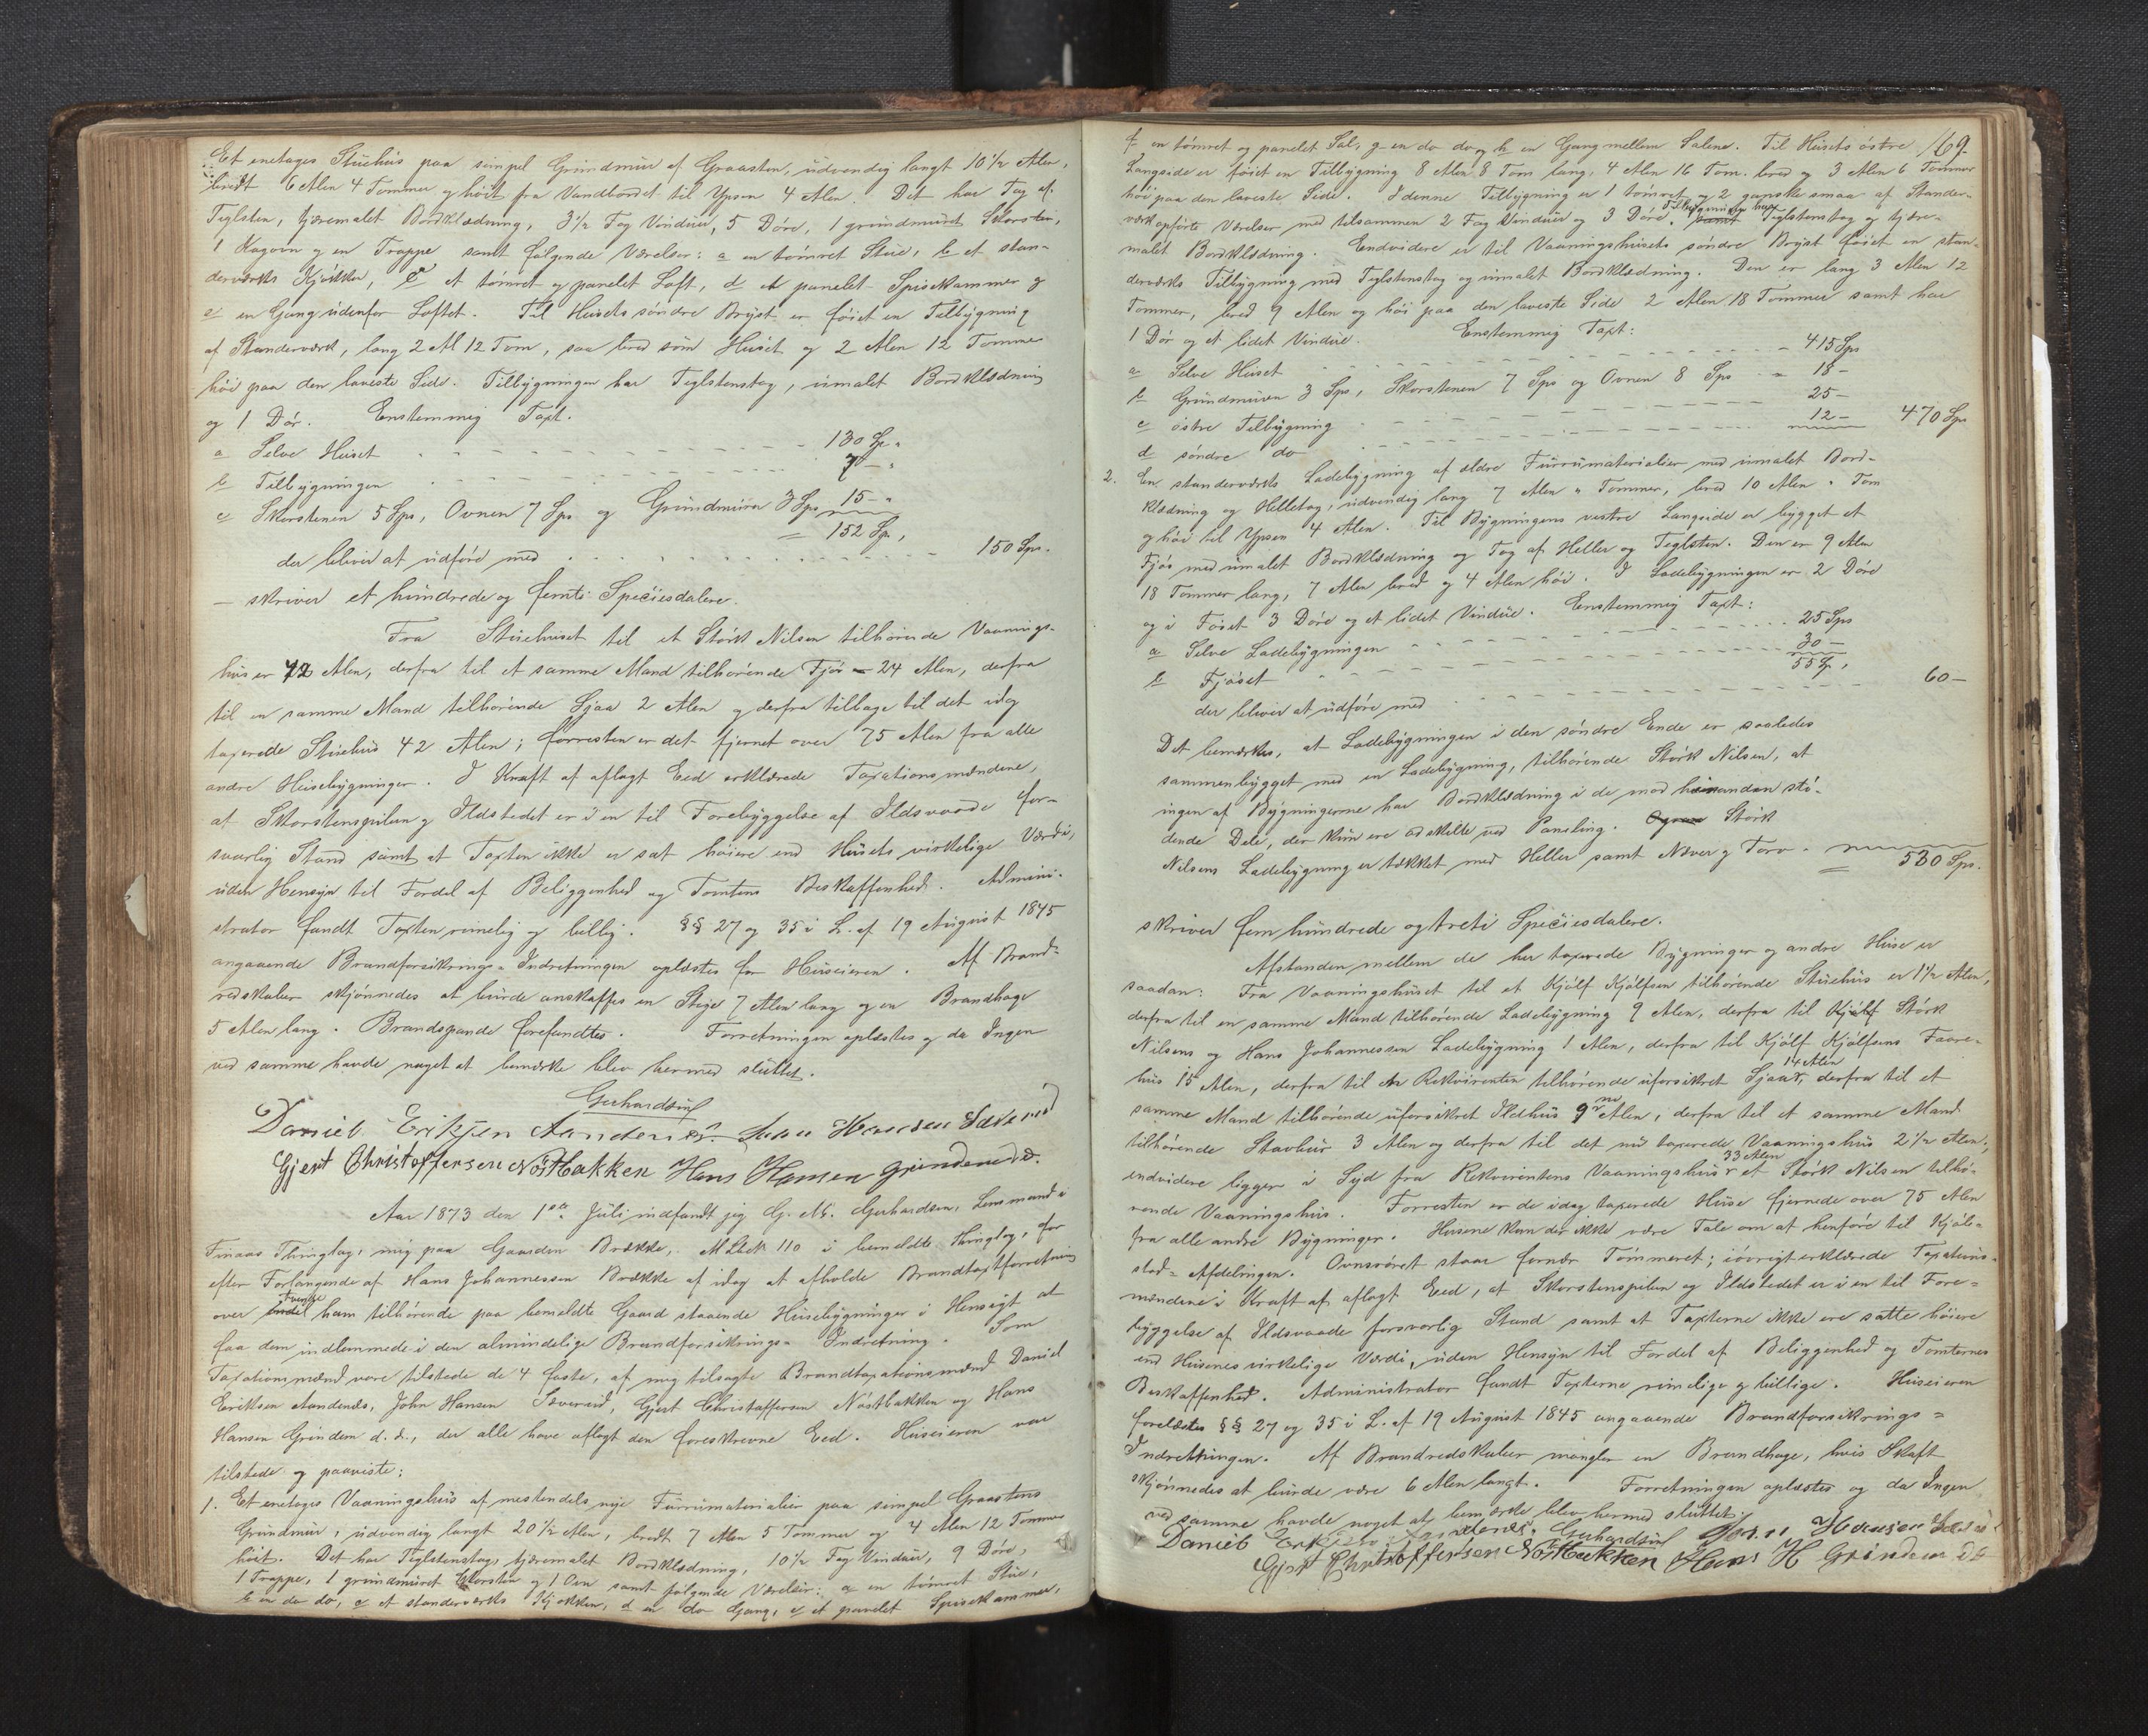 Et enetages Stuehus paa simpel Grundmur af Graasten, udvendig langt 10 1/2 Alen,
bredt 6 Alen 4 Tommer og höit fra Vandbordet til Ypsen 4 Alen. Det har Tag af
Teglsten, tjæremalet Bordklædning, 3 1/2 Fag Vinduer, 5 Döre, 1 grundmuret Skorsten,
1 Kagovn og en Trappe samt følgende Værelser: a en tömret Stue, b et stan-
derværks Kjökken, c et tömret og panelet Loft, d et panelet Spisekammer og
e en Gang udenfor Loftet. Til Husets söndre Bryst er föiet en Tilbygning
af Standerværk, lang 2 Al 12 Tom, saa bred som Huset og 2 Alen 12 Tommer
höi paa den laveste Side. Tilbygningen har Teglstenstag, umalet Bordklædning
og 1 Dör. Enstemmig Taxt.
a Selve Huset 130 Sp "
b Tilbygningen 7 - "
c Skorstenen 5 Sps, Ovnen 7 Sps og Grundmuren 3 Sps 15 - "
= 152 Sp,
der bliver at udföre med 150 Sps.
- skriver et hundrede og femti Speciesdalere.
Fra Stuehuset til et Störk Nilsen tilhörende Vaanings-
hus er 42 Alen, derfra til et samme Mand tilhörende Fjös 24 Alen, derfra
til en samme Mand tilhörende Sjaa 2 Alen og derfra tilbage til det idag
taxerede Stuehus 42 Alen; forresten er det fjernet over 75 Alen fra alle
andre Husebygninger. I Kraft af aflagt Eed erklærede Taxationsmændene,
at Skorstenspiben og Ildstedet er i en til Forebyggelse af Ildsvaade for-
svarlig Stand samt at Taxten ikke er sat höiere end Husets virkelige Værdi,
uden Hensyn til Fordel af Beliggenhed og Tomtens Beskaffenhed. Admini-
strator fandt Taxten rimelig og billig. §§ 27 og 35 i L. af 19 August 1845
angaaende Brandforsikrings-Indretningen oplæstes for Huseieren. Af Brand-
redskaber skjönnedes at burde anskaffes en Stige 7 Alen lang og en Brandhage
5 Alen lang. Brandspande forefandtes. Forretningen oplæstes og da Ingen
ved samme havde noget at bemærke blev hermed sluttet.
Gerhardsen
Daniel Eriksen Aandenes. Hansen
Gjert Christoffersen Nöstbakken Hans Hansen Grindem d.s.
Aar 1873 den 1ste Juli indfandt jeg G. M. Gerhardsen, Lensmand i
Finaas Thinglag, mig paa Gaarden Brække, M. Lbek 110 i bemeldte Thinglag, for
efter Forlangende af Hans Johannessen Brække af idag at afholde Brandtaxtforretning
over tvende ham tilhörende paa bemeldte Gaard staaende Husebygninger i Hensigt at
faa dem indlemmede i den almindelige Brandforsikrings-Indretning. Som
Taxationsmænd vare tilstede de 4 faste, af mig tilsagte Brandtaxationsmænd Daniel
Eriksen Aandenes, John Hansen Sæverud, Gjert Christoffersen Nöstbakken og Hans
Hansen Grindem d. s., der alle have aflagt den foreskrevne Eed. Huseieren var
tilstede og paaviste:
1. Et enetages Vaaningshus af mestendels nye Furrumaterialier paa simpel Graastens
Grundmur, udvendig langt 20 1/2 Alen, bredt 7 Alen 5 Tommer og 4 Alen 12 Tommer
höit. Det har Teglstenstag, tjæremalet Bordklædning, 10 1/2 Fag Vinduer, 9 Döre,
1 Trappe, 1 grundmuret Skorsten og 1 Ovn samt følgende Værelser: a en tömret Stue,
b en do do, c et standerværks Kjökken, d en do Gang, e et panelet Spisekammer,
169.
f en tömret og panelet Sal, g en do do og h en Gang mellem Salene. Til Husets östre
Langside er föiet en Tilbygning 8 Alen 8 Tom lang, 4 Alen 16 Tom. bred og 3 Alen 6 Tommer
höi paa den laveste Side. I denne Tilbygning er 1 tömret og 2 ganske smaa af Stander-
værk opförte Værelser med tilsammen 2 Fag Vinduer og 3 Döre. Tilbygningen har Teglstenstag og tjære-
malet Bordklædning. Endvidere er til Vaaningshusets söndre Bryst föiet en stan-
derværks Tilbygning med Teglstenstag og umalet Bordklædning. Den er lang 3 Alen 12
Tommer, bred 9 Alen og höi paa den laveste Side 2 Alen 18 Tommer samt har
1 Dör og et lidet Vindue. Enstemmig Taxt:
a Selve Huset 415 Sps
b Grundmuren 3 Sps, Skorstenen 7 Sps og Ovnen 8 Sps = 18 -
c östre Tilbygning 25 -
d söndre do 12 - 470 Sps
2. En standerværks Ladebygning af ældre Furrumaterialier med umalet Bord-
klædning og Helletag, udvendig lang 7 Alen " Tommer, bred 10 Alen " Tom
og höi til Ypsen 4 Alen. Til Bygningens vestre Langside er bygget et
Fjös med umalet Bordklædning og Tag af Heller og Teglsten. Den er 9 Alen
18 Tommer lang, 7 Alen bred og 4 Alen höi. I Ladebygningen er 2 Döre
og i Föset 3 Döre og et lidet Vindue. Enstemmig Taxt:
a Selve Ladebygningen 25 Sps
b Fjöset 30 -
55 Sp,
der bliver at udföre med 60 -
Det bemærkes, at Ladebygningen i den söndre Ende er saaledes
sammenbygget med en Ladebygning, tilhörende Störk Nilsen, at
ingen af Bygningerne har Bordklædning i de mod hinanden stö-
dende Dele, der kun ere adskilte ved Paneling. Störk
Nilsens Ladebygning er tækket med Heller samt Næver og Torv.
= 530 Sps.
skriver fem hundrede og treti Speciesdalere.
Afstanden mellem de her taxerede Bygninger og andre Huse er
saadan: Fra Vaaningshuset til et Kjölf Kjölfsen tilhörende Stuehus er 1 1/2 Alen,
derfra til en samme Mand tilhörende Ladebygning 9 Alen, derfra til Störk
Nilsens og Hans Johannessen Ladebygning 1 Alen, derfra til Kjölf Kjölfsens Faare-
hus 15 Alen, derfra til en Rekvirenten tilhörende uforsikret Sjaa 14 Alen, derfra til et
samme Mand tilhörende uforsikret Ildhus 9 Alen, derfra til et samme Mand
tilhörende Stavbur 3 Alen og derfra til det nu taxerede Vaaningshus 2 1/2 Alen;
endvidere ligger i Syd fra Rekvirentens Vaaningshus 33 Alen et Störk Nilsen tilhö-
rende Vaaningshus. Forresten er de idag taxerede Huse fjernede over 75 Alen
fra alle andre Bygninger. Husene kan der ikke være Tale om at henföre til Kjöb-
stad-Afdelingen. Ovnsröret staar fornær Tömmeret; iövrigt erklærede Taxations-
mændene i Kraft af aflagt Eed, at Skorstenspiben og Ildstedet er i en til Fore-
byggelse af Ildsvaade forsvarlig Stand samt at Taxterne ikke ere satte höiere
end Husenes virkelige Værdi, uden Hensyn til Fordel af Beliggenhed og Tomternes
Beskaffenhed. Administrator fandt Taxterne rimelige og billige. Huseieren
forelæstes §§ 27 og 35 i L. af 19 August 1845 angaaende Brandforsikrings-
Indretningen. Af Brandredskaber mangler en Brandhage, hvis Skaft
skjönnedes at burde være 6 Alen langt. Forretningen oplæstes og da Ingen
ved samme havde noget at bemærke blev hermed sluttet.
Daniel Eriksen Aandenes. Gerhardsen Hansen
Gjert Christoffersen Nöstbakken Hans H Grindem ds